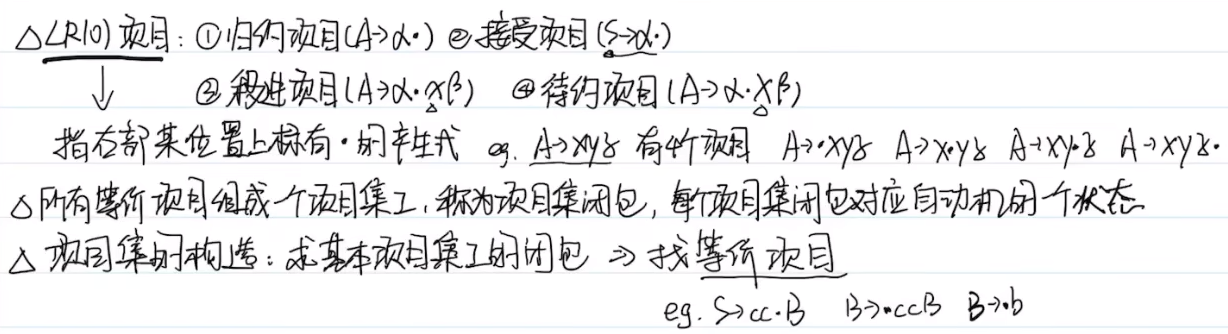 △ LR(0) 项目：①归约项目(A→α·) ②接受项目(S→α·)
↓ ③移进项目(A→α·xβ) ④待约项目(A→α·Xβ)
指右部某位置上标有·的产生式 eg. A→xyz 有4个项目 A→·xyz A→x·yz A→xy·z A→xyz·
△所有等价项目组成一个项目集I，称为项目集闭包，每个项目集闭包对应自动机的一个状态
△ 项目集的构造：求基本项目集I的闭包 ⇒ 找等价项目
eg. S→cc·B B→·ccB B→·b